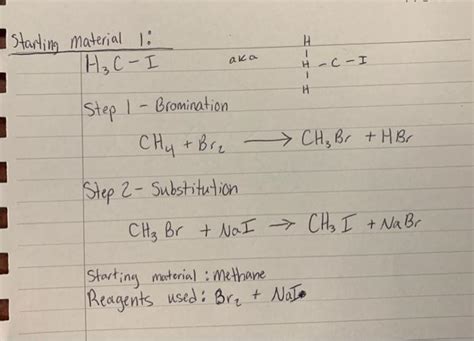 Starting Material 1:
H₃C - I aka H - C - I
H
H
Step 1 - Bromination
CH₄ + Br₂ → CH₃Br + HBr
Step 2 - Substitution
CH₃Br + NaI → CH₃I + NaBr
Starting material : methane
Reagents used : Br₂ + NaI